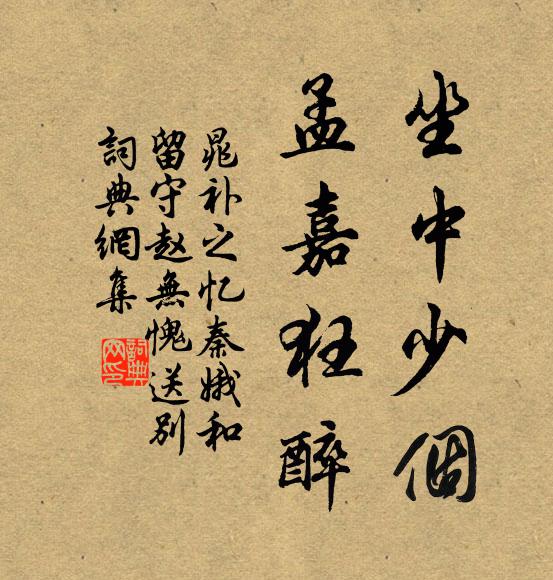 坐中少個
孟嘉狂醉
晁补之忆秦娥和
留守赵無愧送别
詞典網集
詞典
网印